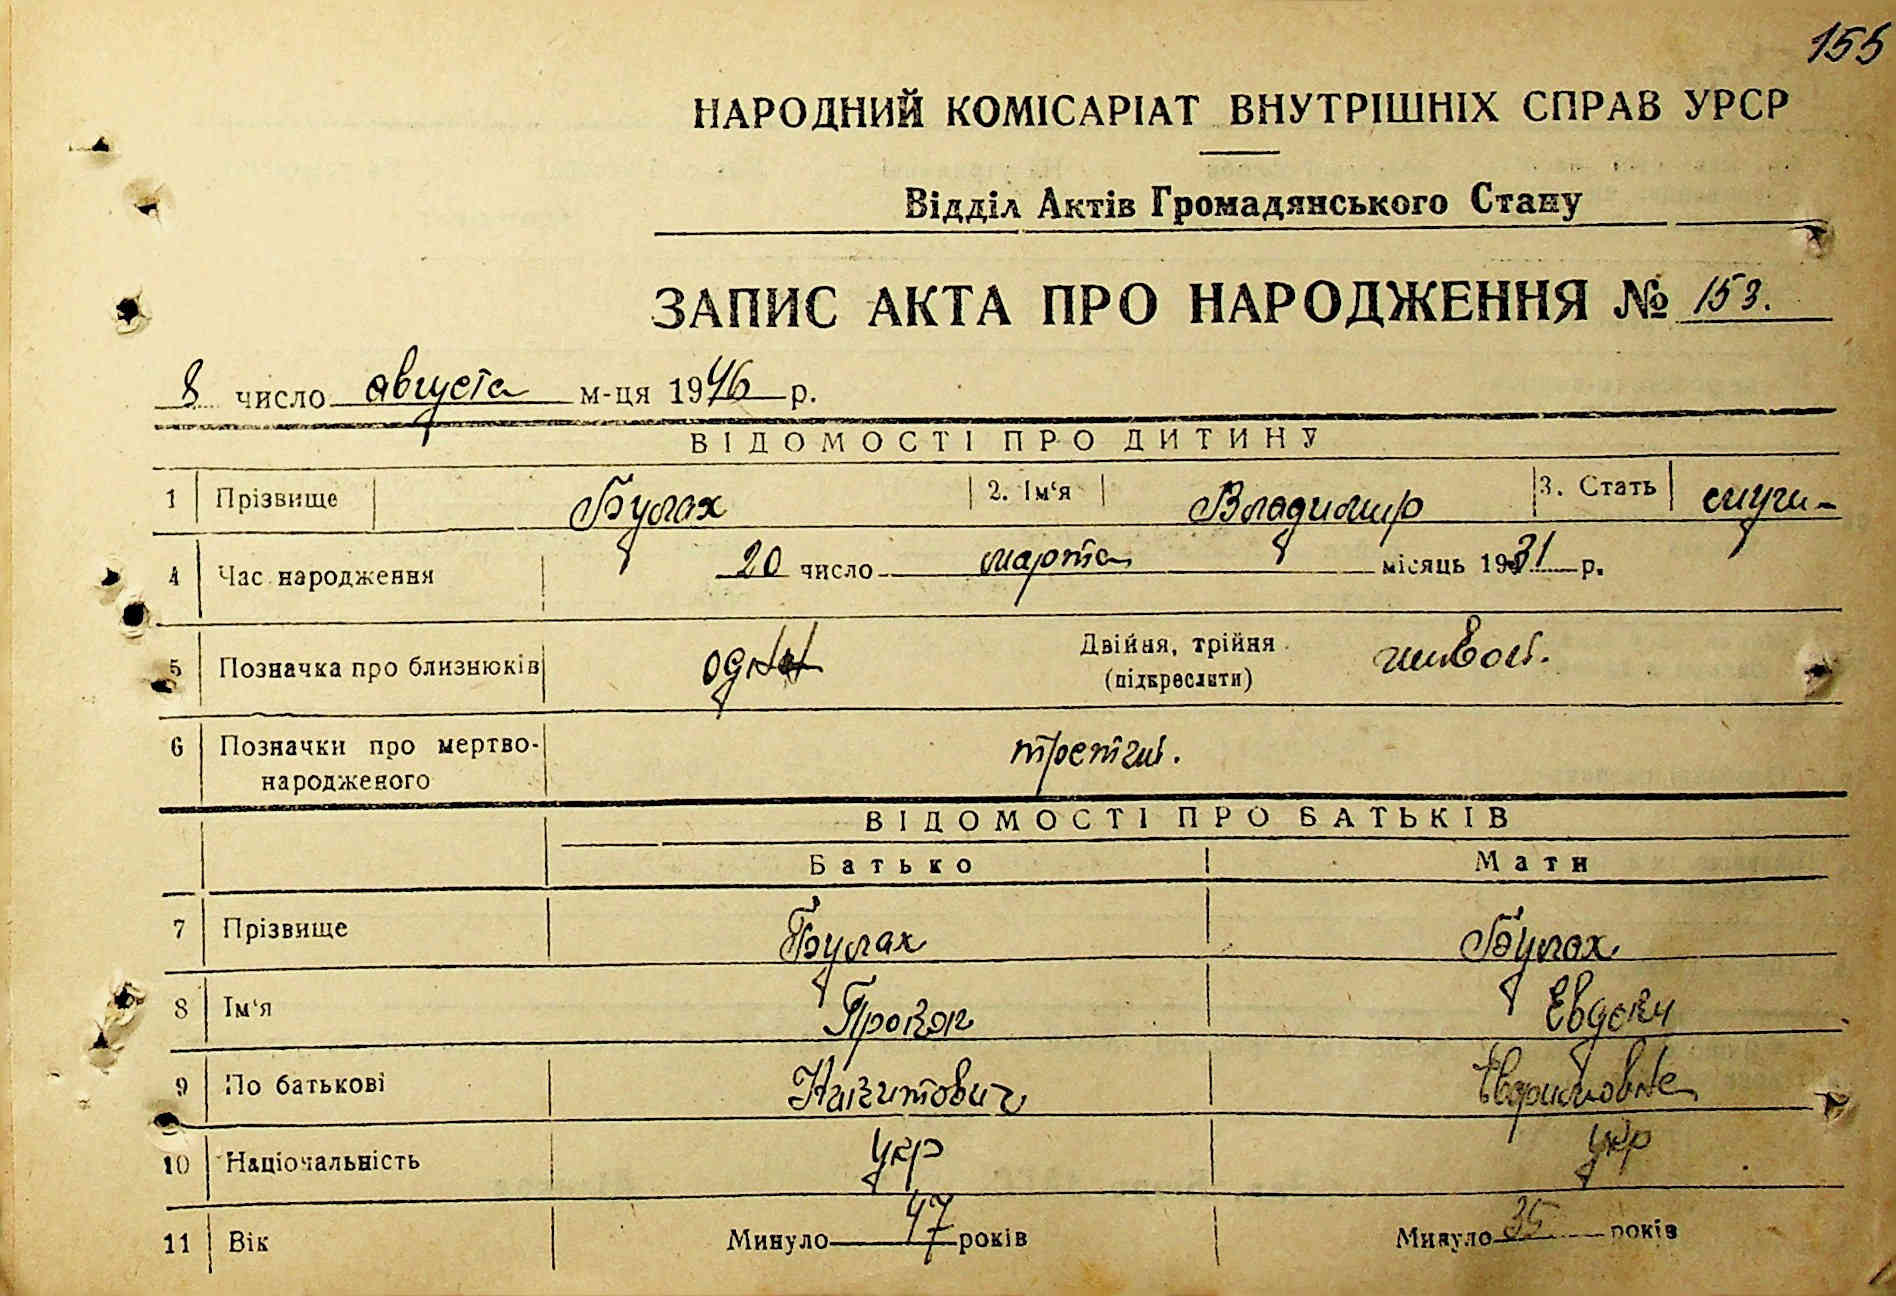 155
НАРОДНИЙ КОМІСАРІАТ ВНУТРІШНІХ СПРАВ УРСР
Відділ Актів Громадянського Стану
ЗАПИС АКТА ПРО НАРОДЖЕННЯ № 153.
8 число августа м-ця 1946 р.
ВІДОМОСТІ ПРО ДИТИНУ
1 Прізвище Булах 2. Ім‘я Владимир 3. Стать мужч-
4 Час народження 20 число марта місяць 1931 р.
5 Позначка про близнюків один Двійня, трійня живой.
(підкреслити)
6 Позначки про мертво- третий.
народженого
ВІДОМОСТІ ПРО БАТЬКІВ
Батько Мати
7 Прізвище Булах Булах
8 Ім‘я Прокоп
9 По батькові
10 Національність укр укр
11 Вік Минуло 47 років Минуло 35 років